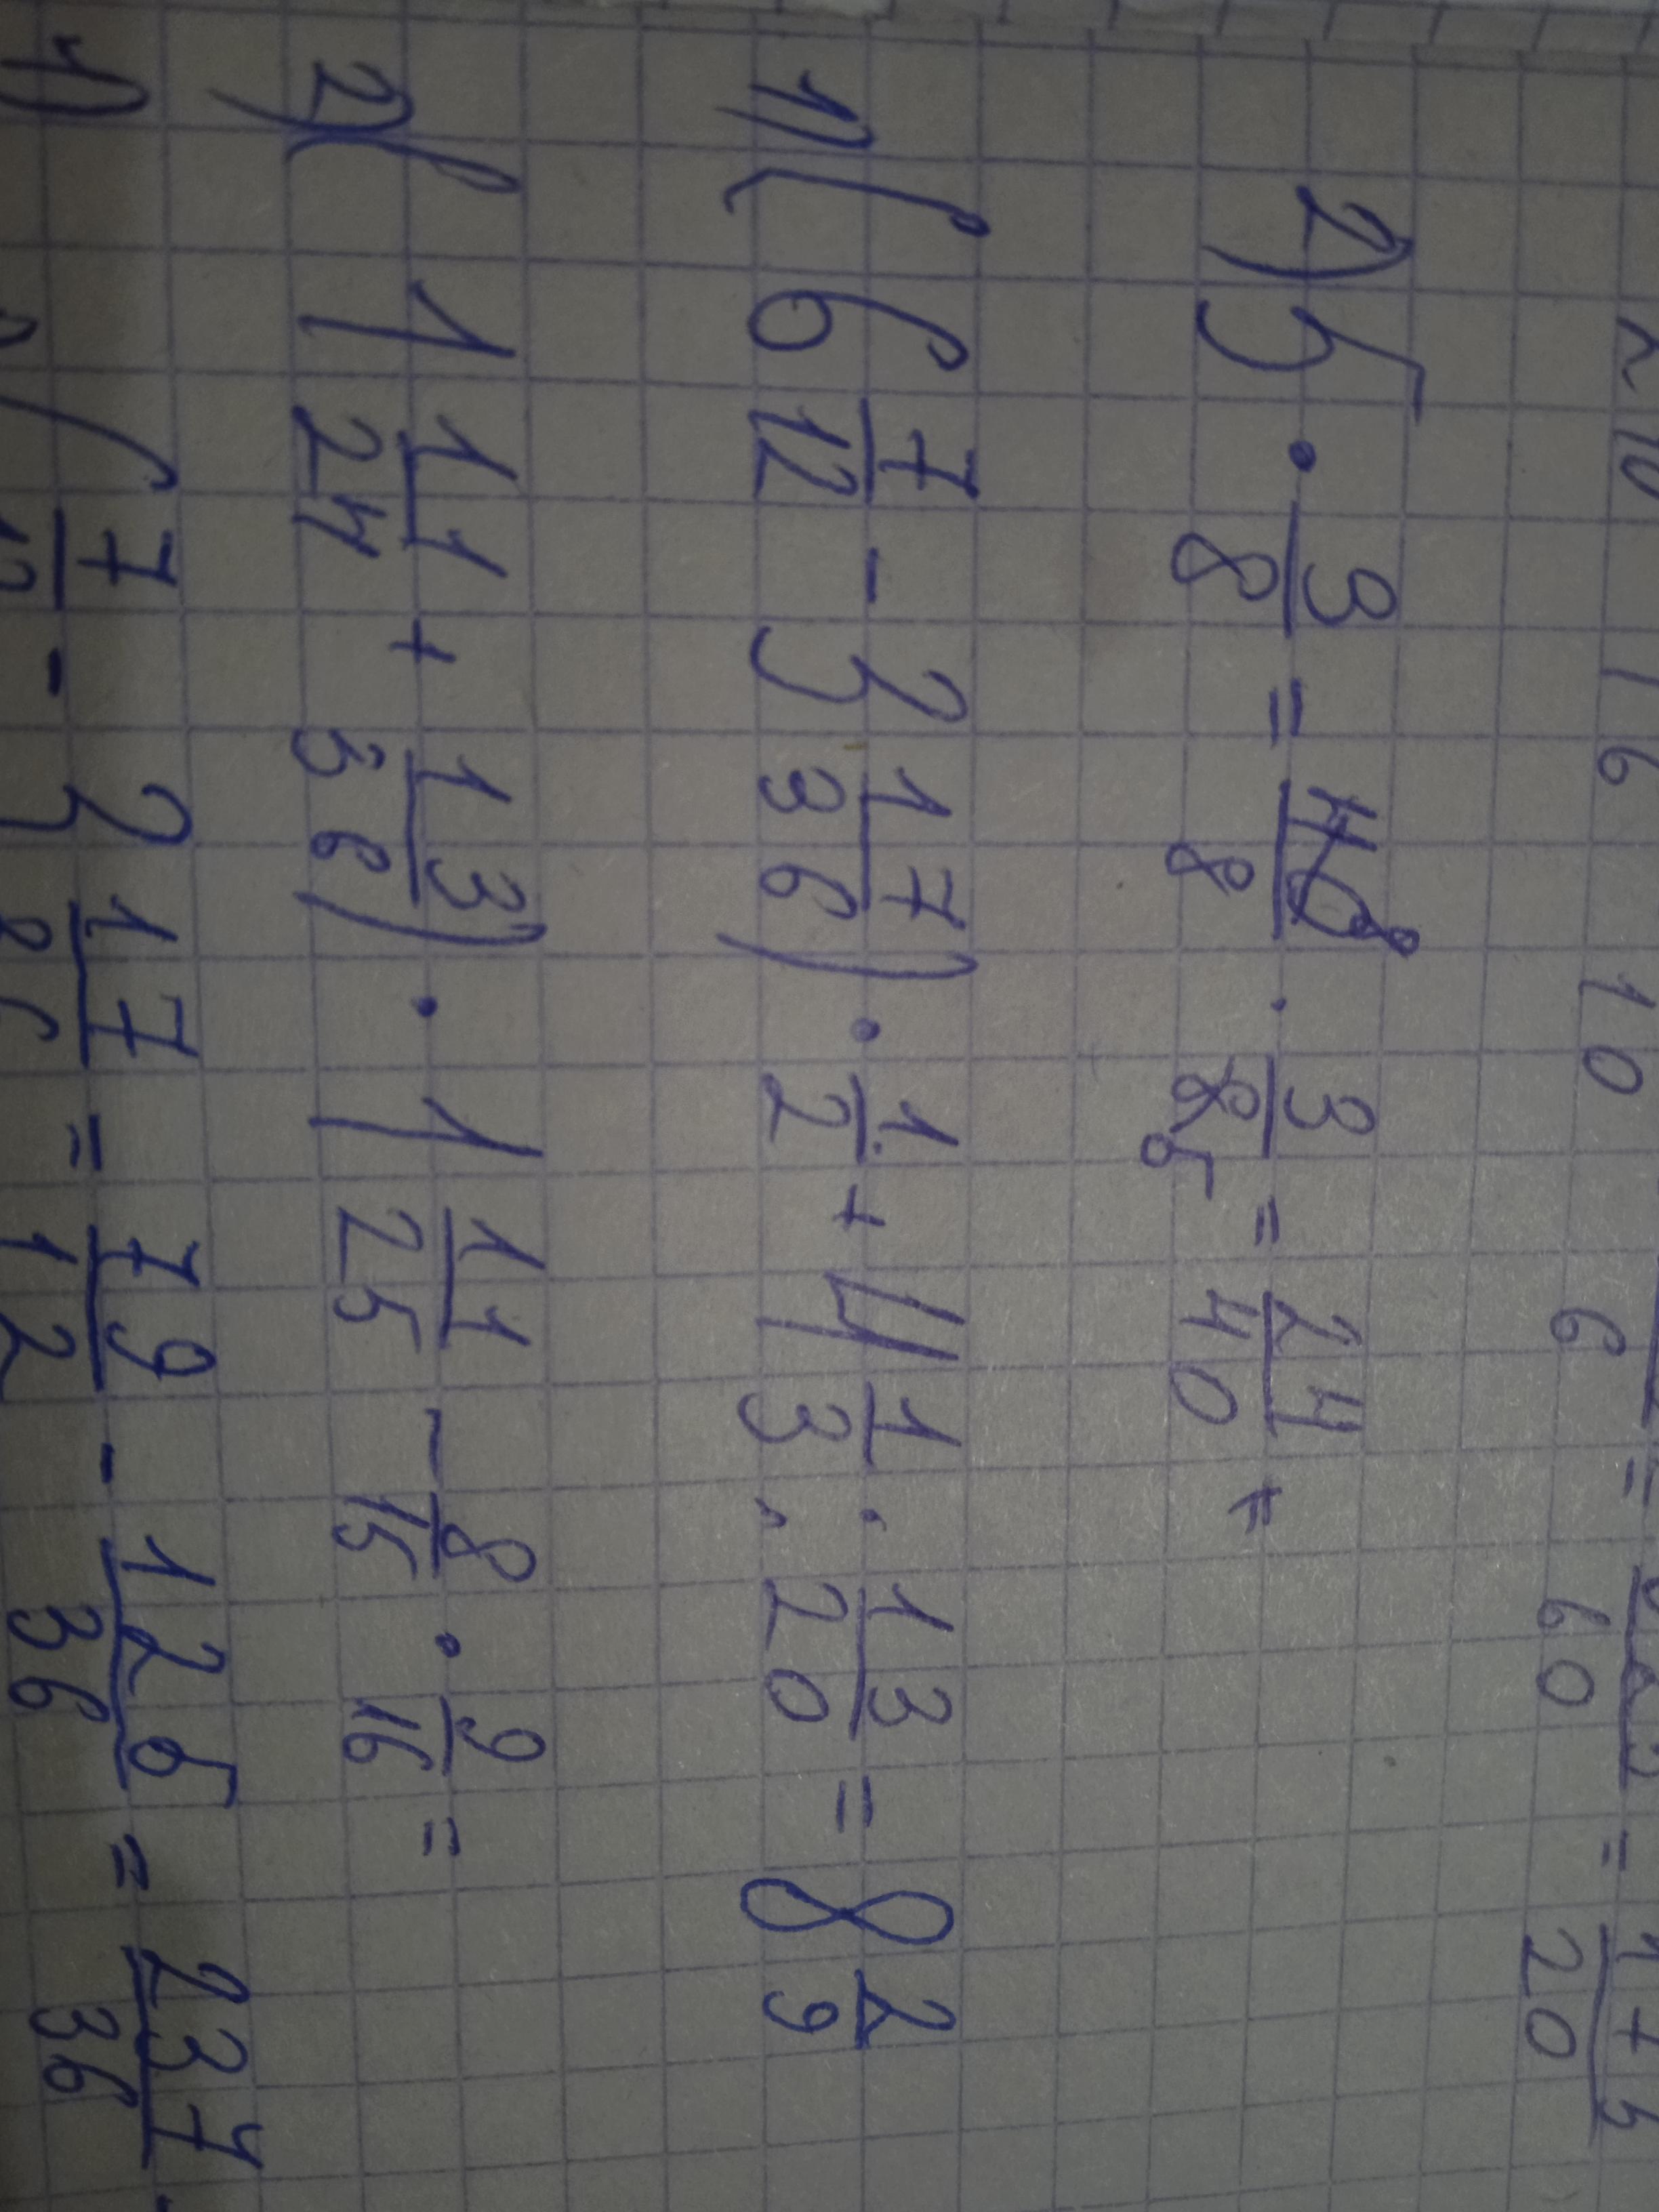 10 16 10 6 60 20
2) 5 · 3/8 = 40/8 · 3/8 5 = 24/40 =
1) (6 7/12 - 3 17/36) · 1/2 + 4 1/3 · 13/20 = 8 2/9
2) (1 11/24 + 13/36) · 1 11/25 - 8/15 · 9/16 =
1) 7/12 - 3 17/36 = 79/12 - 125/36 = 237/36